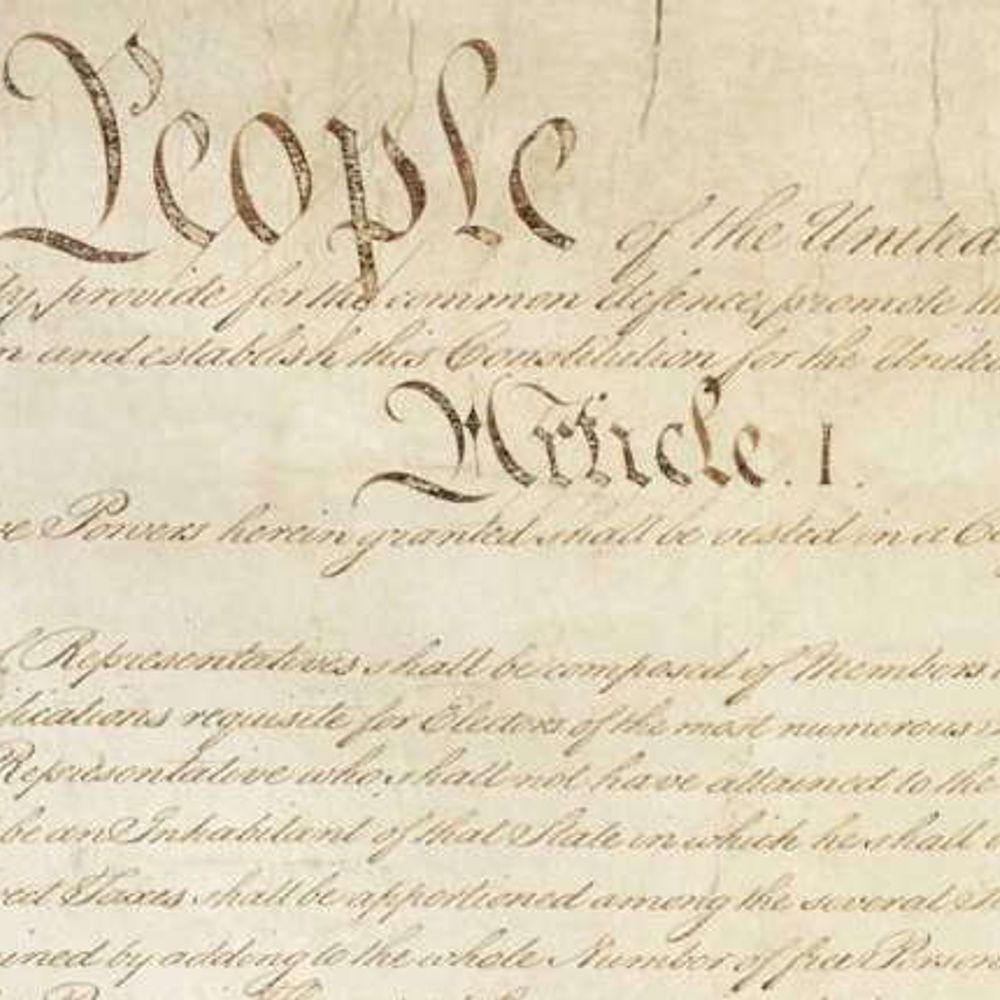 People of the United
ty, provide for the common defence, promote th
n and establish this Constitution for the United
Article. I.
ve Powers herein granted shall be vested in a Co
f Representatives shall be composed of Members
lications requisite for Electors of the most numerous
Representative who shall not have attained to the
be an Inhabitant of that State in which he shall
rect Taxes shall be apportioned among the several St
ined by adding to the whole Number of free Person